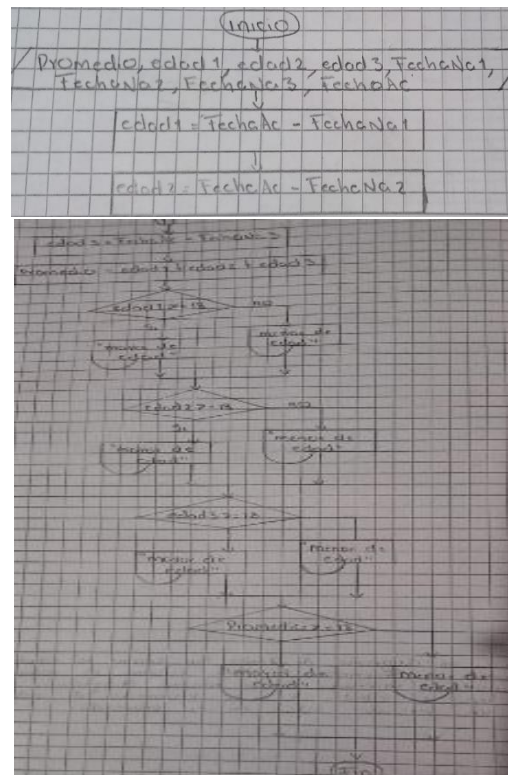 inicio
Promedio, edad1, edad2, edad3, FechaNa1,
FechaNa2, FechaNa3, FechaAc
edad1 = FechaAc - FechaNa1
edad2 = FechaAc - FechaNa2
edad3 = FechaAc - FechaNa3
Promedio = edad1 + edad2 + edad3
edad1 >= 18
no
si
"menor de
edad"
edad2 >= 18
no
si
"menor de
edad"
edad3 >= 18
"menor de
edad"
Promedio >= 18
"menor de
edad"